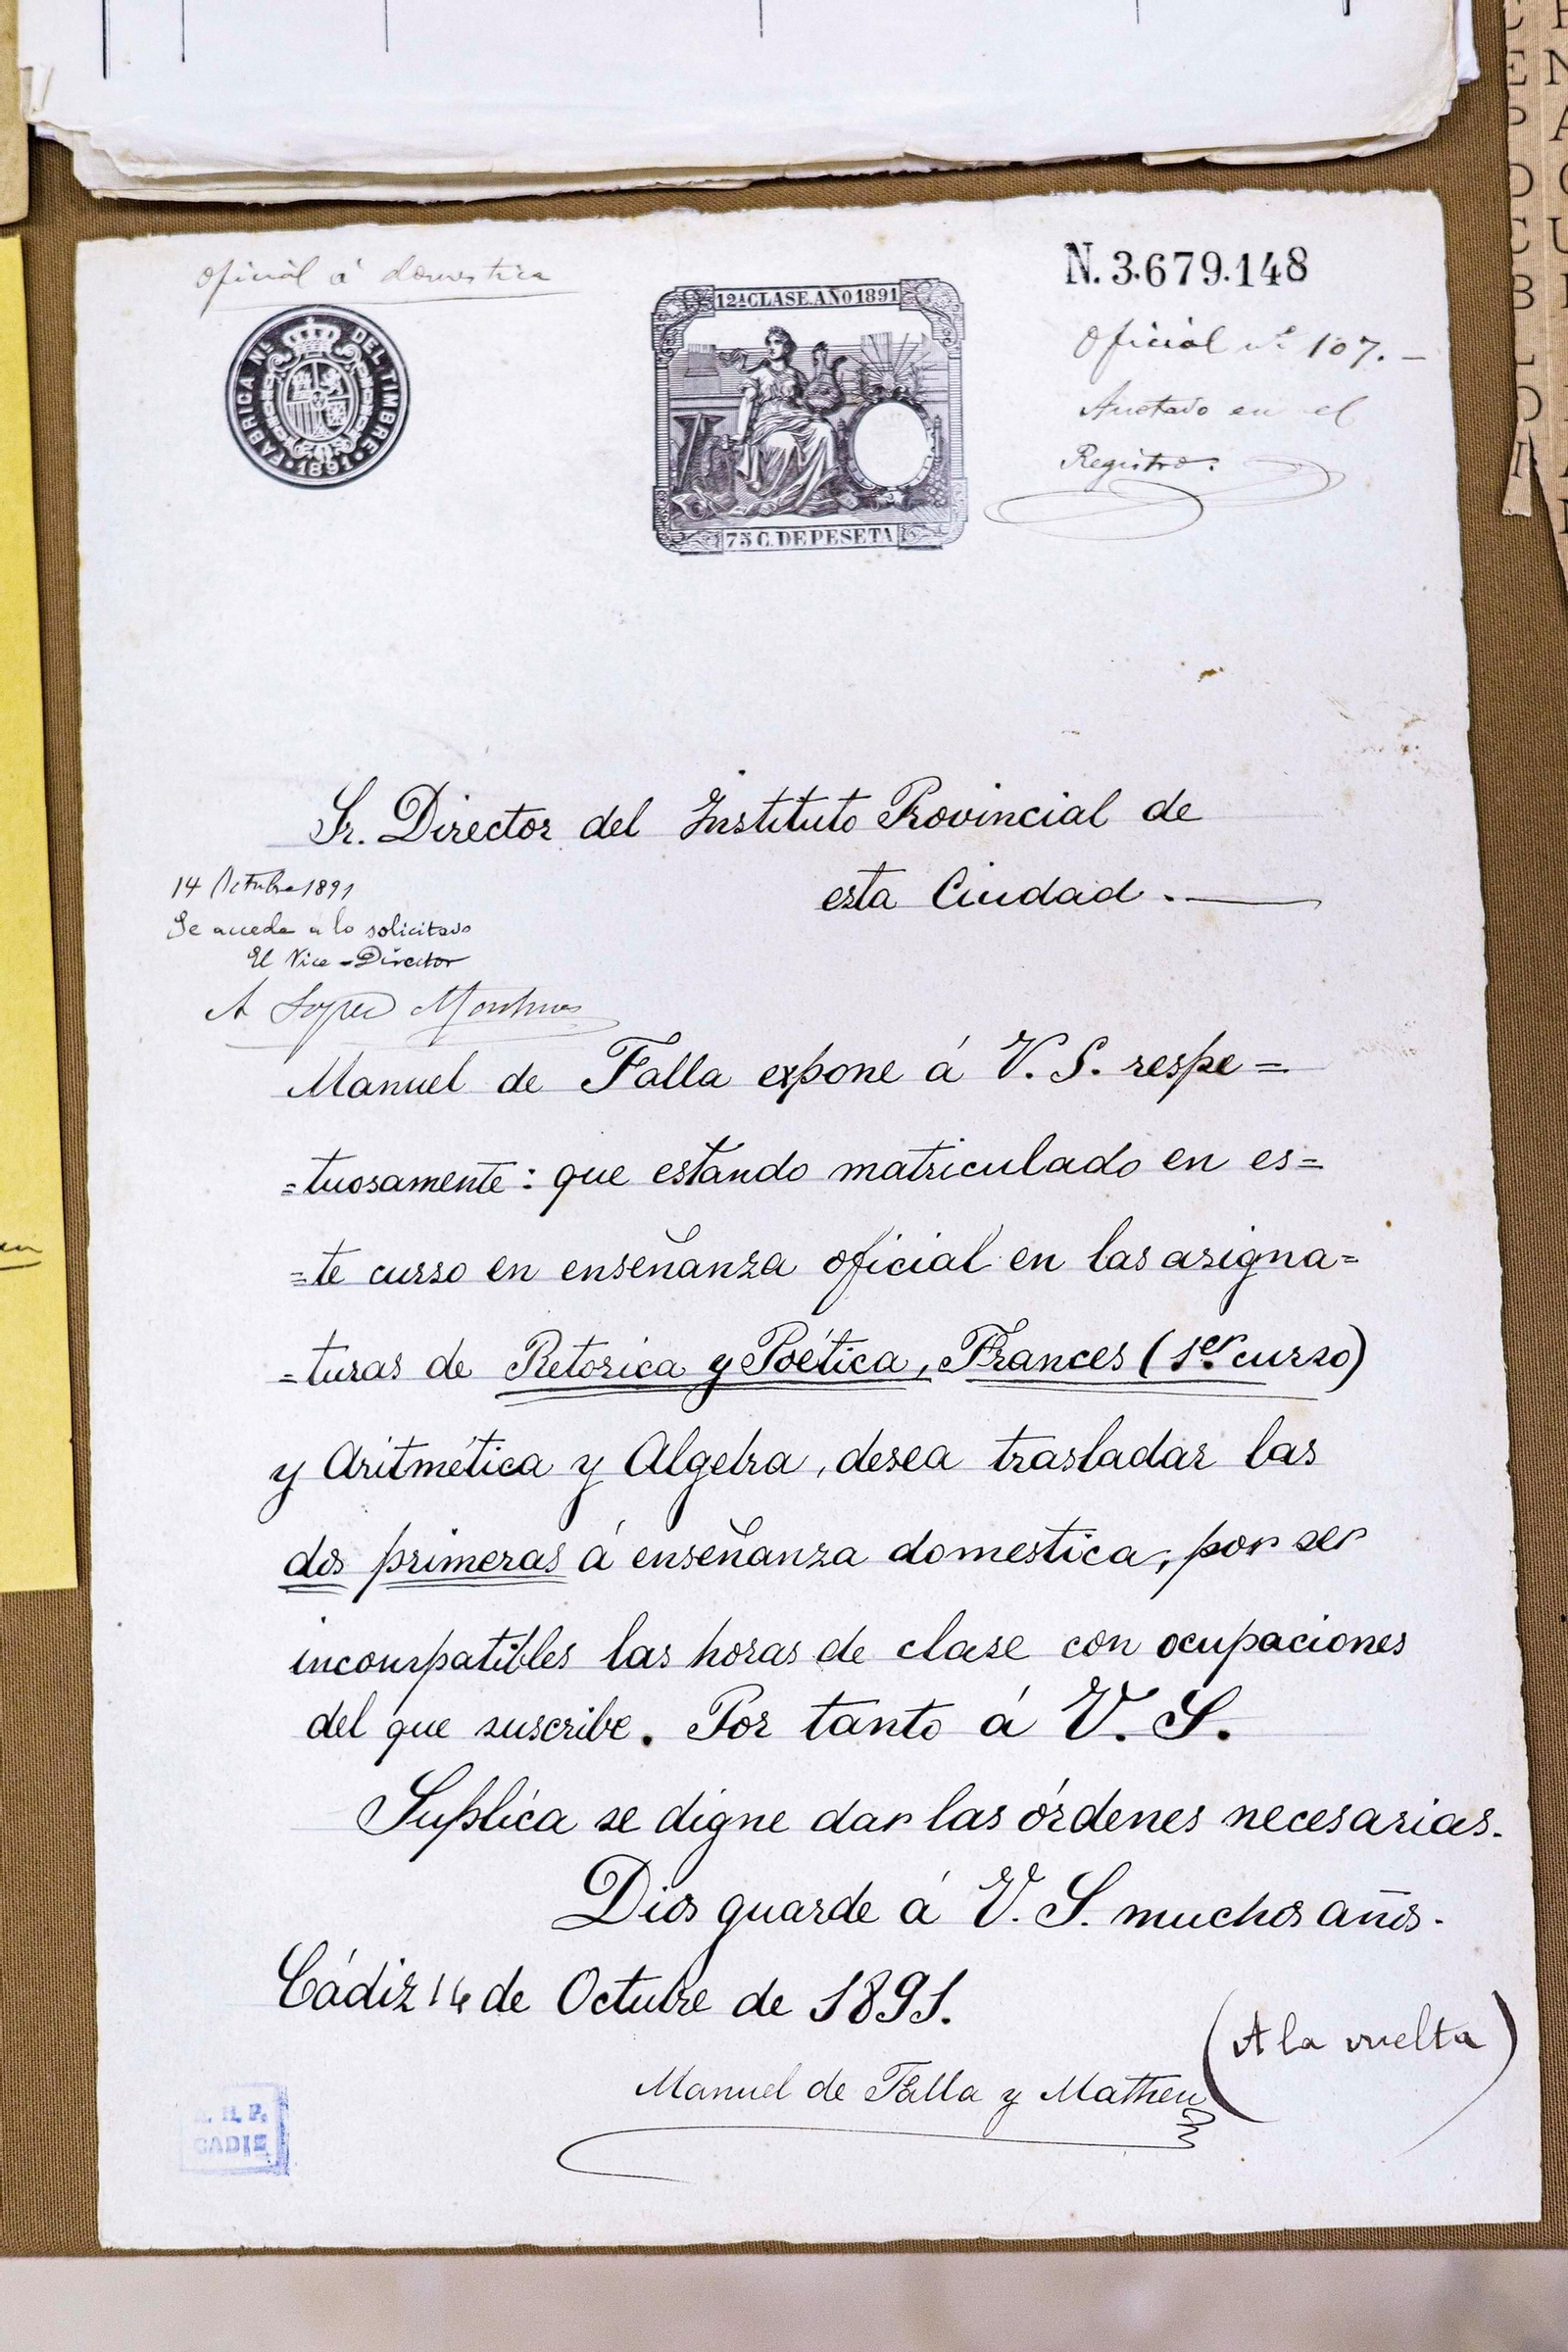 oficial á domestica
FABRICA N. DEL TIMBRE
1891
12ª CLASE. AÑO 1891
75 C. DE PESETA
N. 3.679.148
Oficial nº 107. —
Anotado en el
Registro.
Sr. Director del Instituto Provincial de
esta Ciudad. —
14 Octubre 1891
Se accede a lo solicitado
El Vice-Director
A Lopez
Manuel de Falla expone á V. S. respe=
=tuosamente: que estando matriculado en es=
=te curso en enseñanza oficial en las asigna=
=turas de Retorica y Poética, Frances (1er. curso)
y Aritmética y Algebra, desea trasladar las
dos primeras á enseñanza domestica, por ser
incompatibles las horas de clase con ocupaciones
del que suscribe. Por tanto á V. S.
Suplica se digne dar las órdenes necesarias.
Dios guarde á V. S. muchos años.
Cádiz 14 de Octubre de 1891.
(A la vuelta)
Manuel de Falla y Matheu
H. P.
CADIZ